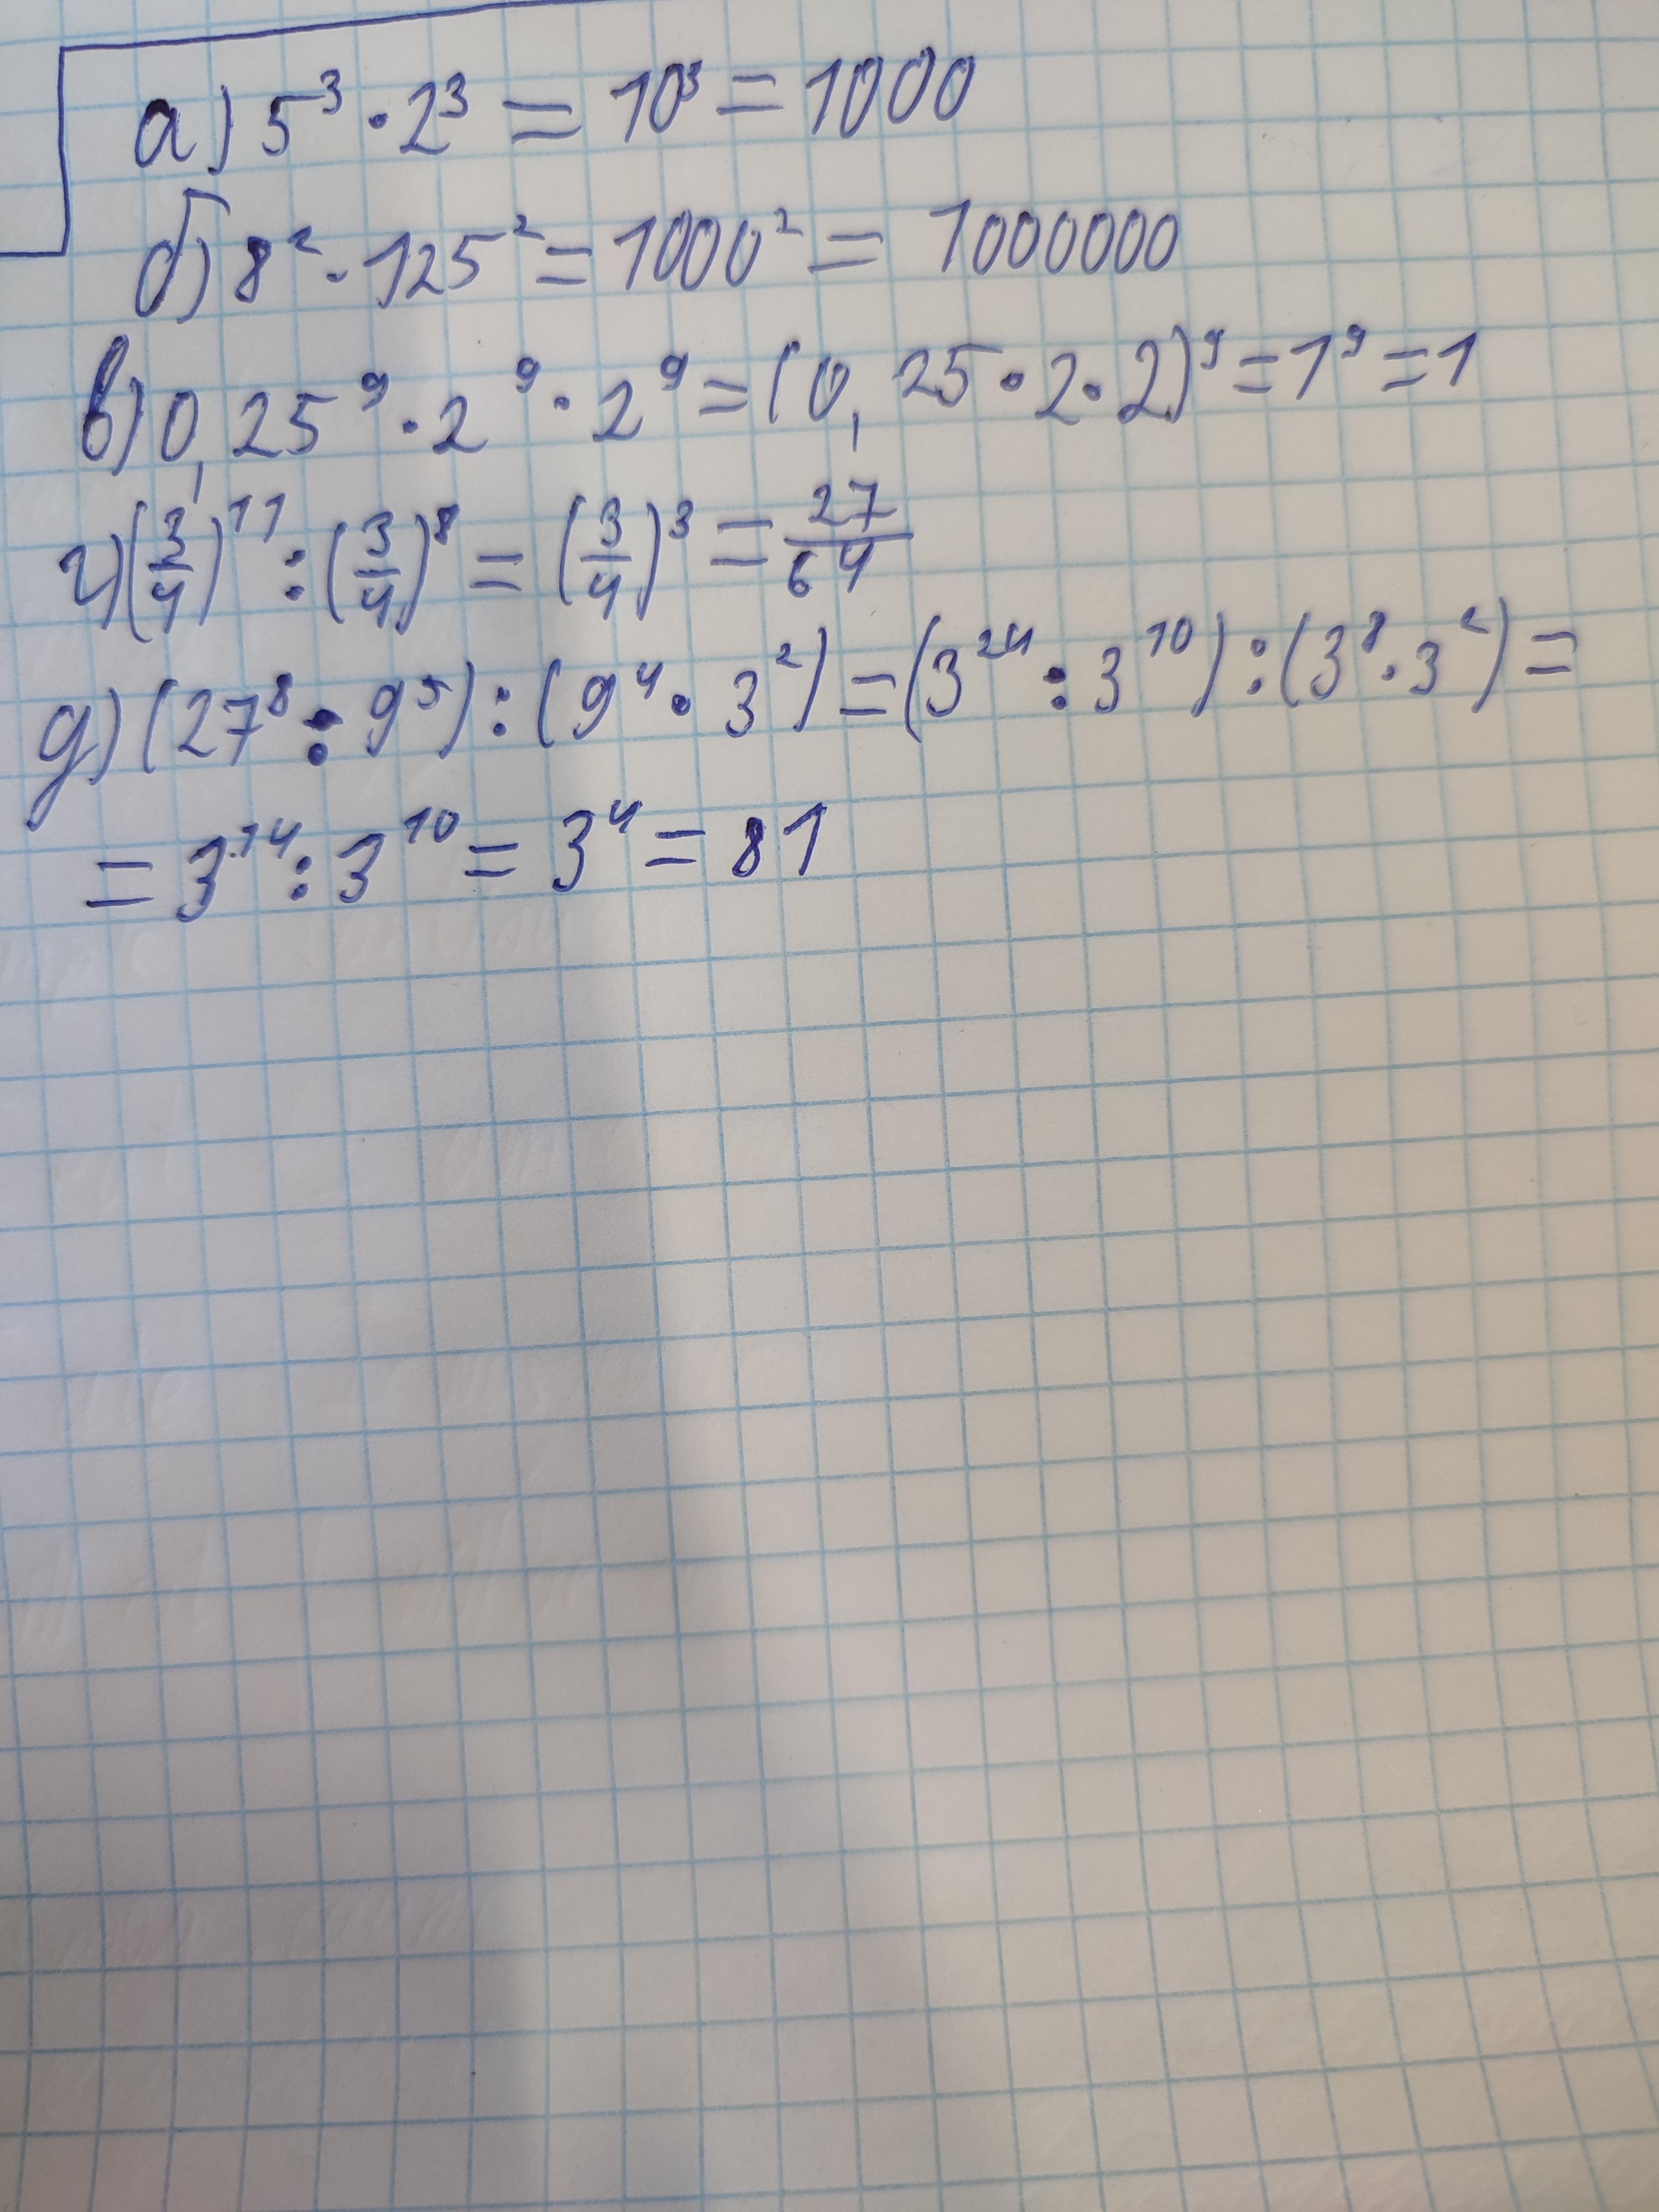 а) 5³ · 2³ = 10³ = 1000
б) 8² · 125² = 1000² = 1000000
в) 0,25⁹ · 2⁹ · 2⁹ = (0,25 · 2 · 2)⁹ = 1⁹ = 1
г) (3/4)¹¹ : (3/4)⁸ = (3/4)³ = 27/64
д) (27⁸ : 9⁵) : (9⁴ · 3²) = (3²⁴ : 3¹⁰) : (3⁸ · 3²) =
= 3¹⁴ : 3¹⁰ = 3⁴ = 81